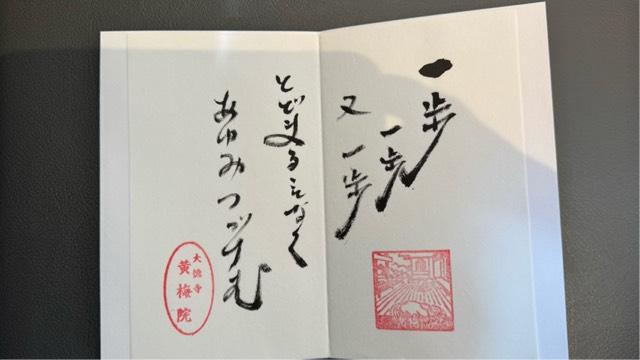 一歩
一歩
又一歩
とどまることなく
あゆみつづけむ
大徳寺
黄梅院